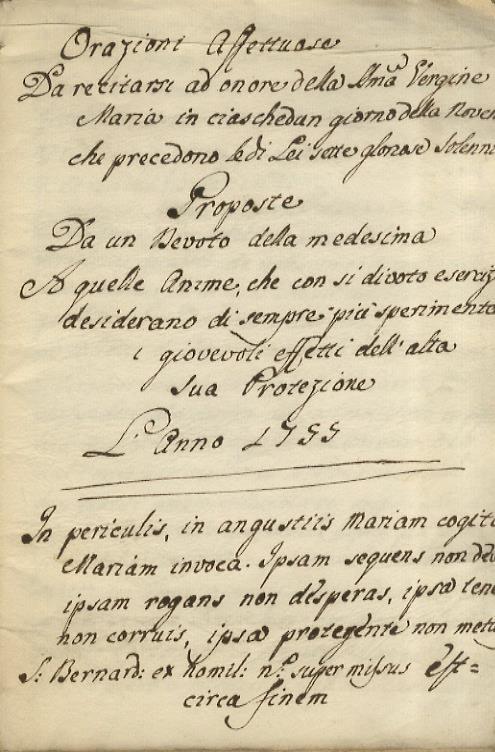 Orazioni Affettuose
Da recitarsi ad onore della Sma Vergine
Maria in ciaschedun giorno della Noven
che precedono le di Lei sette gloriose Solenni
Proposte
Da un Devoto della medesima
A quelle Anime, che con si divoto eserciz
desiderano di sempre più sperimenta
i giovevoli effetti dell'alta
sua Protezione
L'Anno 1755
In periculis, in angustiis Mariam cogita
Mariam invoca. Ipsam sequens non dev
ipsam rogans non desperas, ipsa tene
non corruis, ipsa protegente non metu
S: Bernard: ex homil: nª super missus est=
circa finem